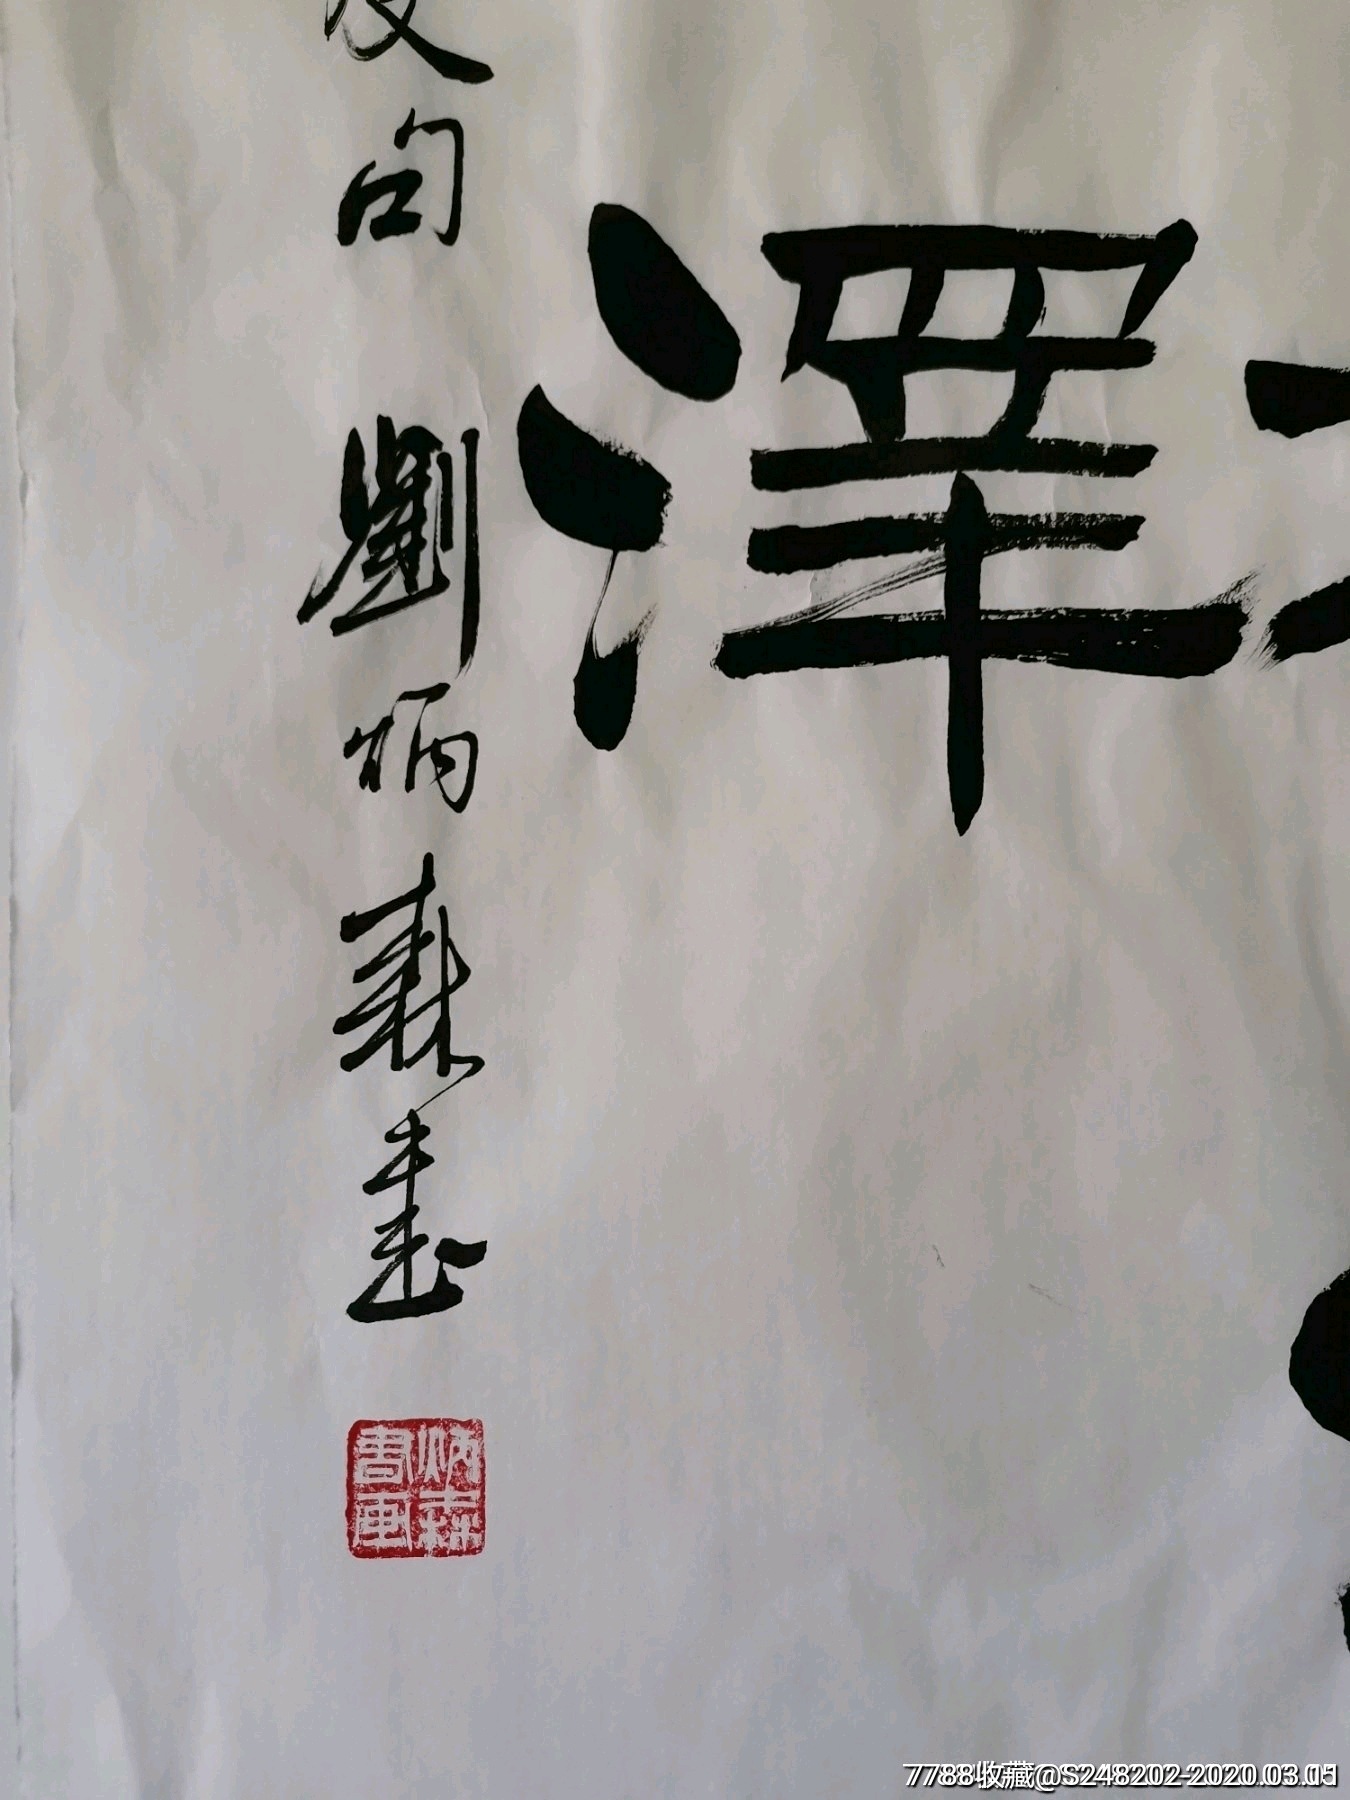 澤
句劉炳森書
炳森
書画
7788收藏@S248202-2020.03.05